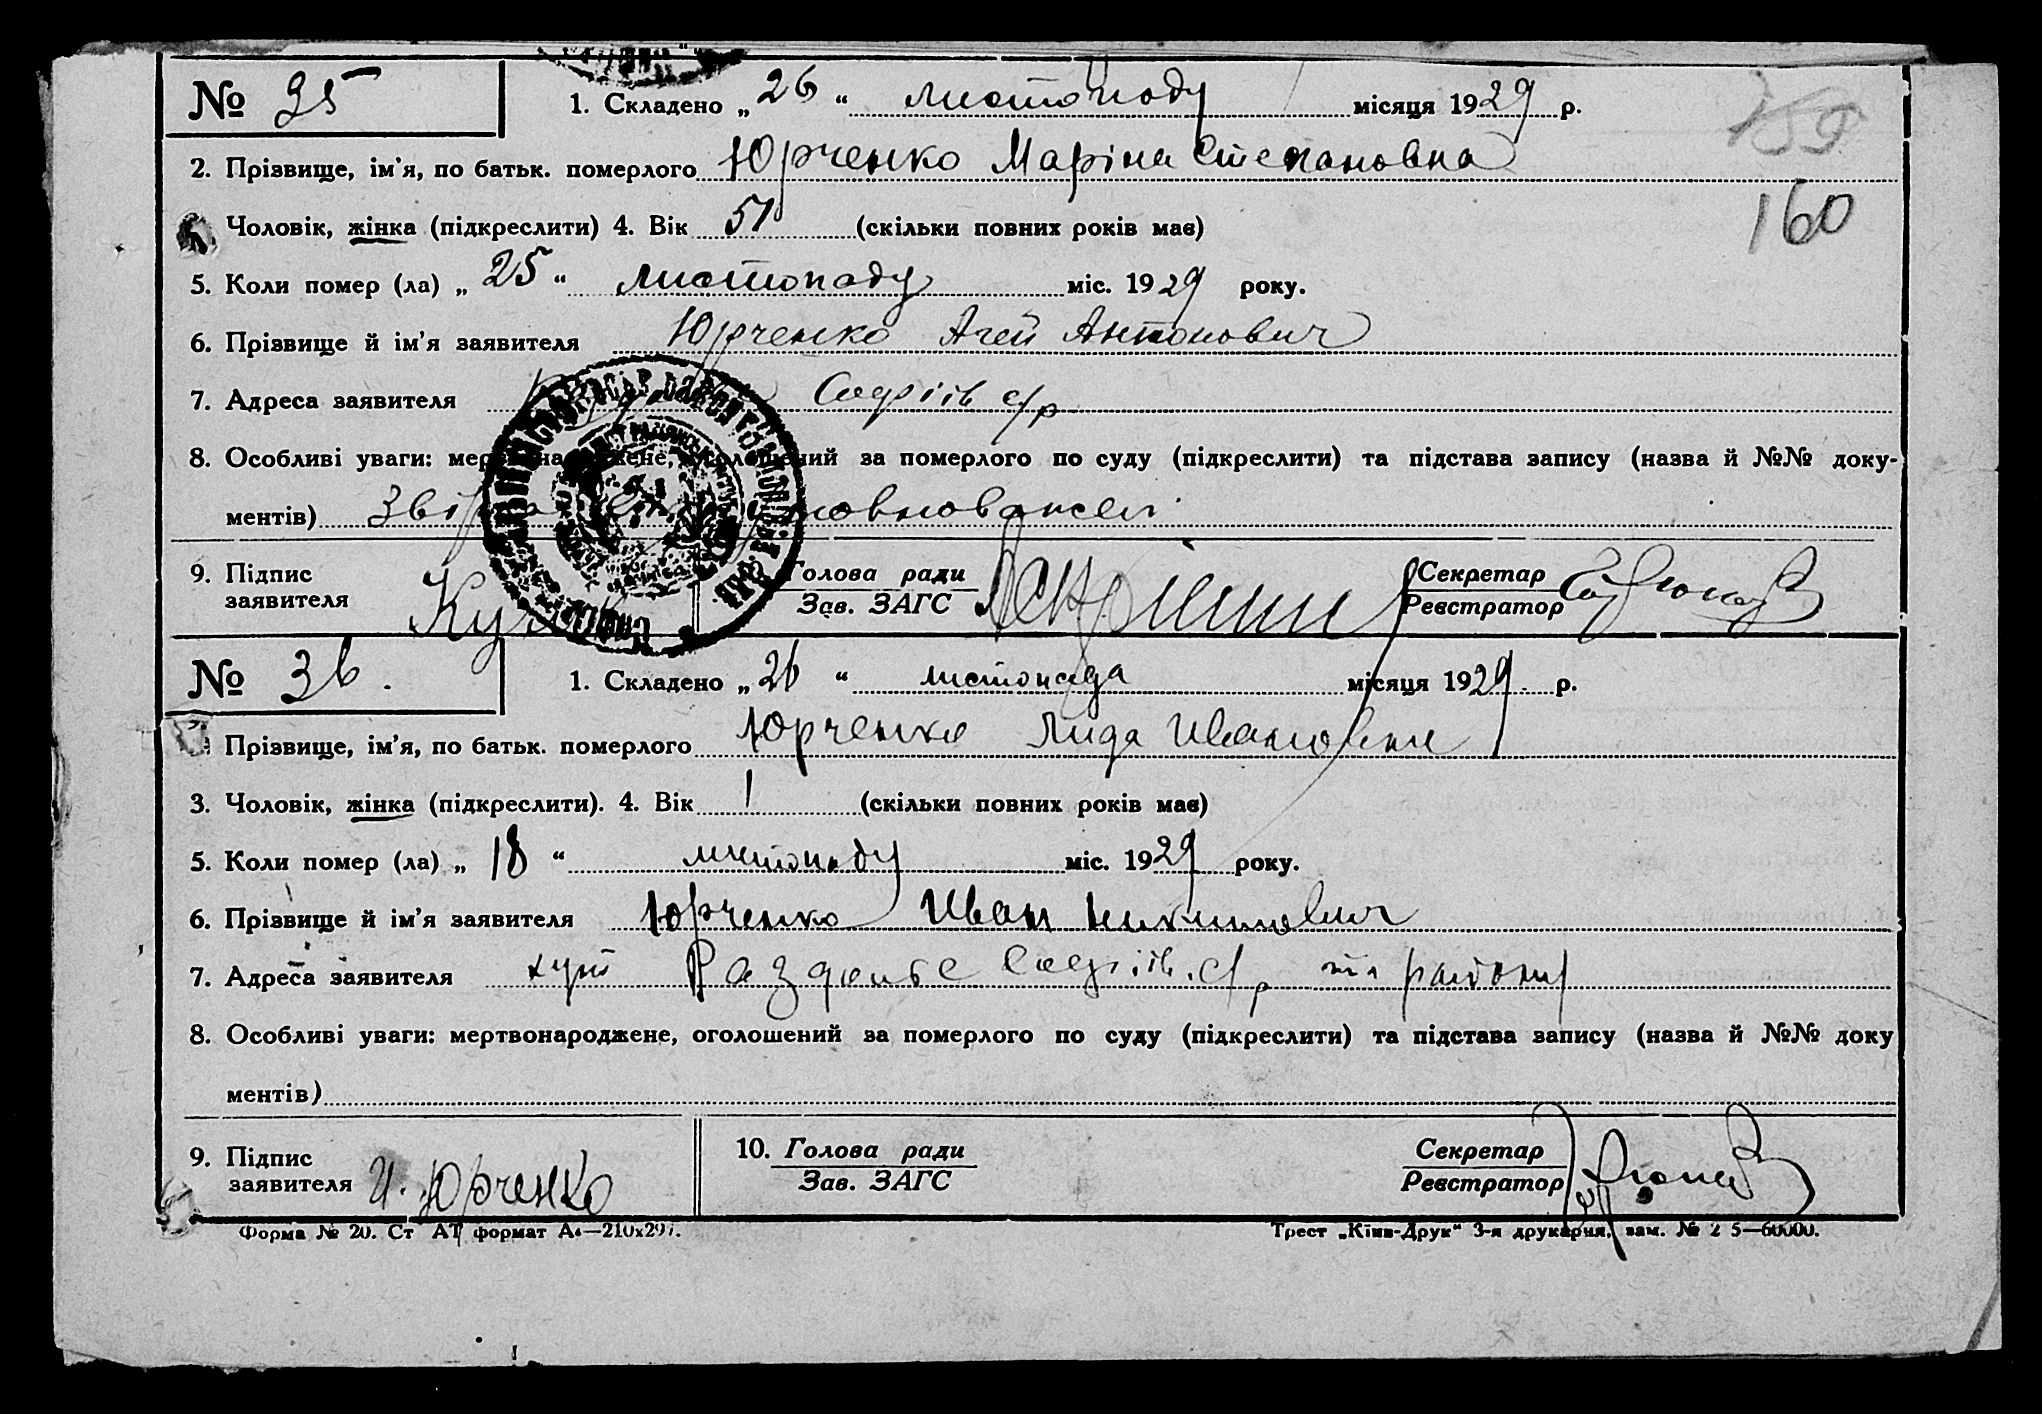 № 35
1. Складено „26“ листопаду місяця 1929 р.
159
2. Прізвище, ім'я, по батьк. померлого Юрченко Маріна Степановна
160
Чоловік, жінка (підкреслити) 4. Вік 51 (скільки повних років має)
5. Коли помер (ла) „25“ листопаду міс. 1929 року.
6. Прізвище й ім'я заявителя Юрченко Агей Антонович
7. Адреса заявителя с/р
8. Особливі уваги: мертвонароджене, оголошений за померлого по суду (підкреслити) та підстава запису (назва й №№ доку-
ментів)
9. Підпис заявителя
Голова ради
Зав. ЗАГС
Секретар
Реєстратор
№ 36.
1. Складено „26“ листопада місяця 1929 р.
Прізвище, ім'я, по батьк. померлого Юрченко Лида Ивановна
3. Чоловік, жінка (підкреслити). 4. Вік 1 (скільки повних років має)
5. Коли помер (ла) „18“ листопаду міс. 1929 року.
6. Прізвище й ім'я заявителя Юрченко Иван Никитович
7. Адреса заявителя хут Раздолье с/р району
8. Особливі уваги: мертвонароджене, оголошений за померлого по суду (підкреслити) та підстава запису (назва й №№ доку
ментів)
9. Підпис заявителя И. Юрченко
10. Голова ради
Зав. ЗАГС
Секретар
Реєстратор
Форма № 20. Ст АТ формат А4—210х297.
Трест „Київ-Друк“ 3-я друкарня, зам. №